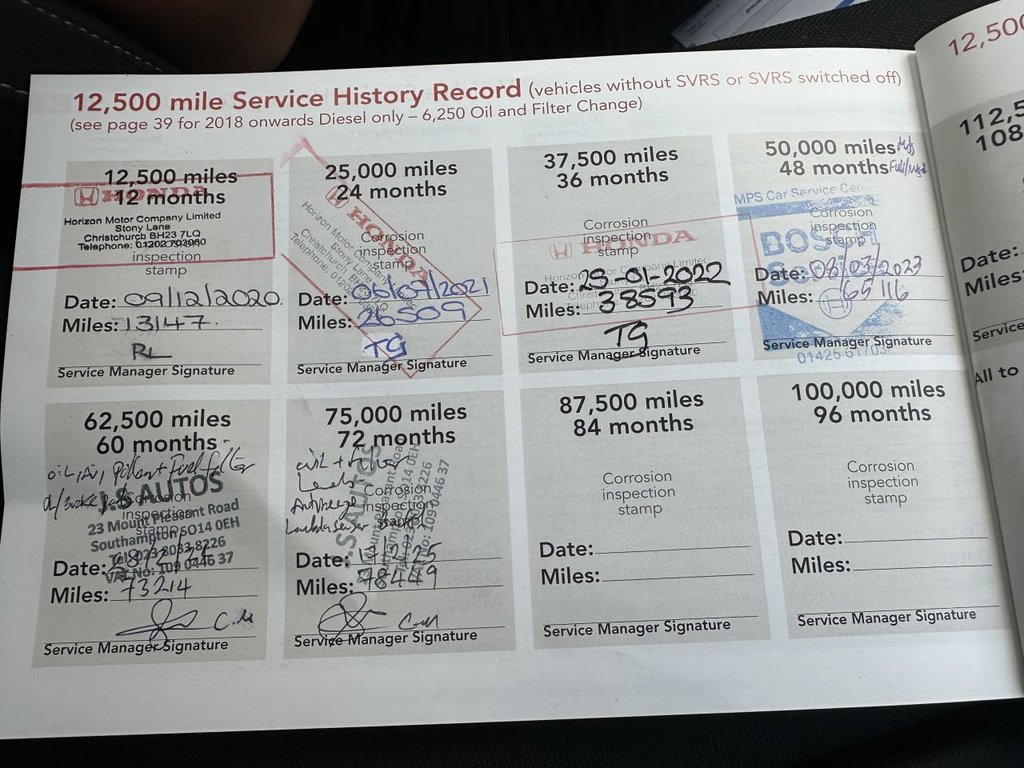 12,500 mile Service History Record (vehicles without SVRS or SVRS switched off)
(see page 39 for 2018 onwards Diesel only – 6,250 Oil and Filter Change)
12,500 miles
12 months
HONDA
Horizon Motor Company Limited
Stony Lane
Christchurch BH23 7LQ
Telephone: 01202
inspection
stamp
Date: 09/12/2020
Miles: 13147
RL
Service Manager Signature
25,000 miles
24 months
HONDA
Horizon Motor
Stony Lane
Christchurch
Telephone: 0120
Corrosion
inspection
stamp
Date: 2021
Miles: 26509
TG
Service Manager Signature
37,500 miles
36 months
Corrosion
inspection
stamp
HONDA
Date: 29-01-2022
Miles: 38593
TG
Service Manager Signature
50,000 miles
48 months
MPS Car Service
Corrosion
inspection
stamp
BOSCH
Date: 08/03/2023
Miles: 65116
Service Manager Signature
01426
62,500 miles
60 months
Oil, Air, Pollen + Fuel filter
J.S AUTOS
Corrosion
inspection
stamp
23 Mount Pleasant Road
Southampton SO14 0EH
Tel: 023 8033 8226
VAT No: 109 0446 37
Date:
Miles: 73214
Service Manager Signature
75,000 miles
72 months
Corrosion
inspection
AUTOS
Antifreeze
Date:
Miles: 78449
Service Manager Signature
87,500 miles
84 months
Corrosion
inspection
stamp
Date:
Miles:
Service Manager Signature
100,000 miles
96 months
Corrosion
inspection
stamp
Date:
Miles:
Service Manager Signature
12,500
112,5
108
Date:
Miles:
Service
All to